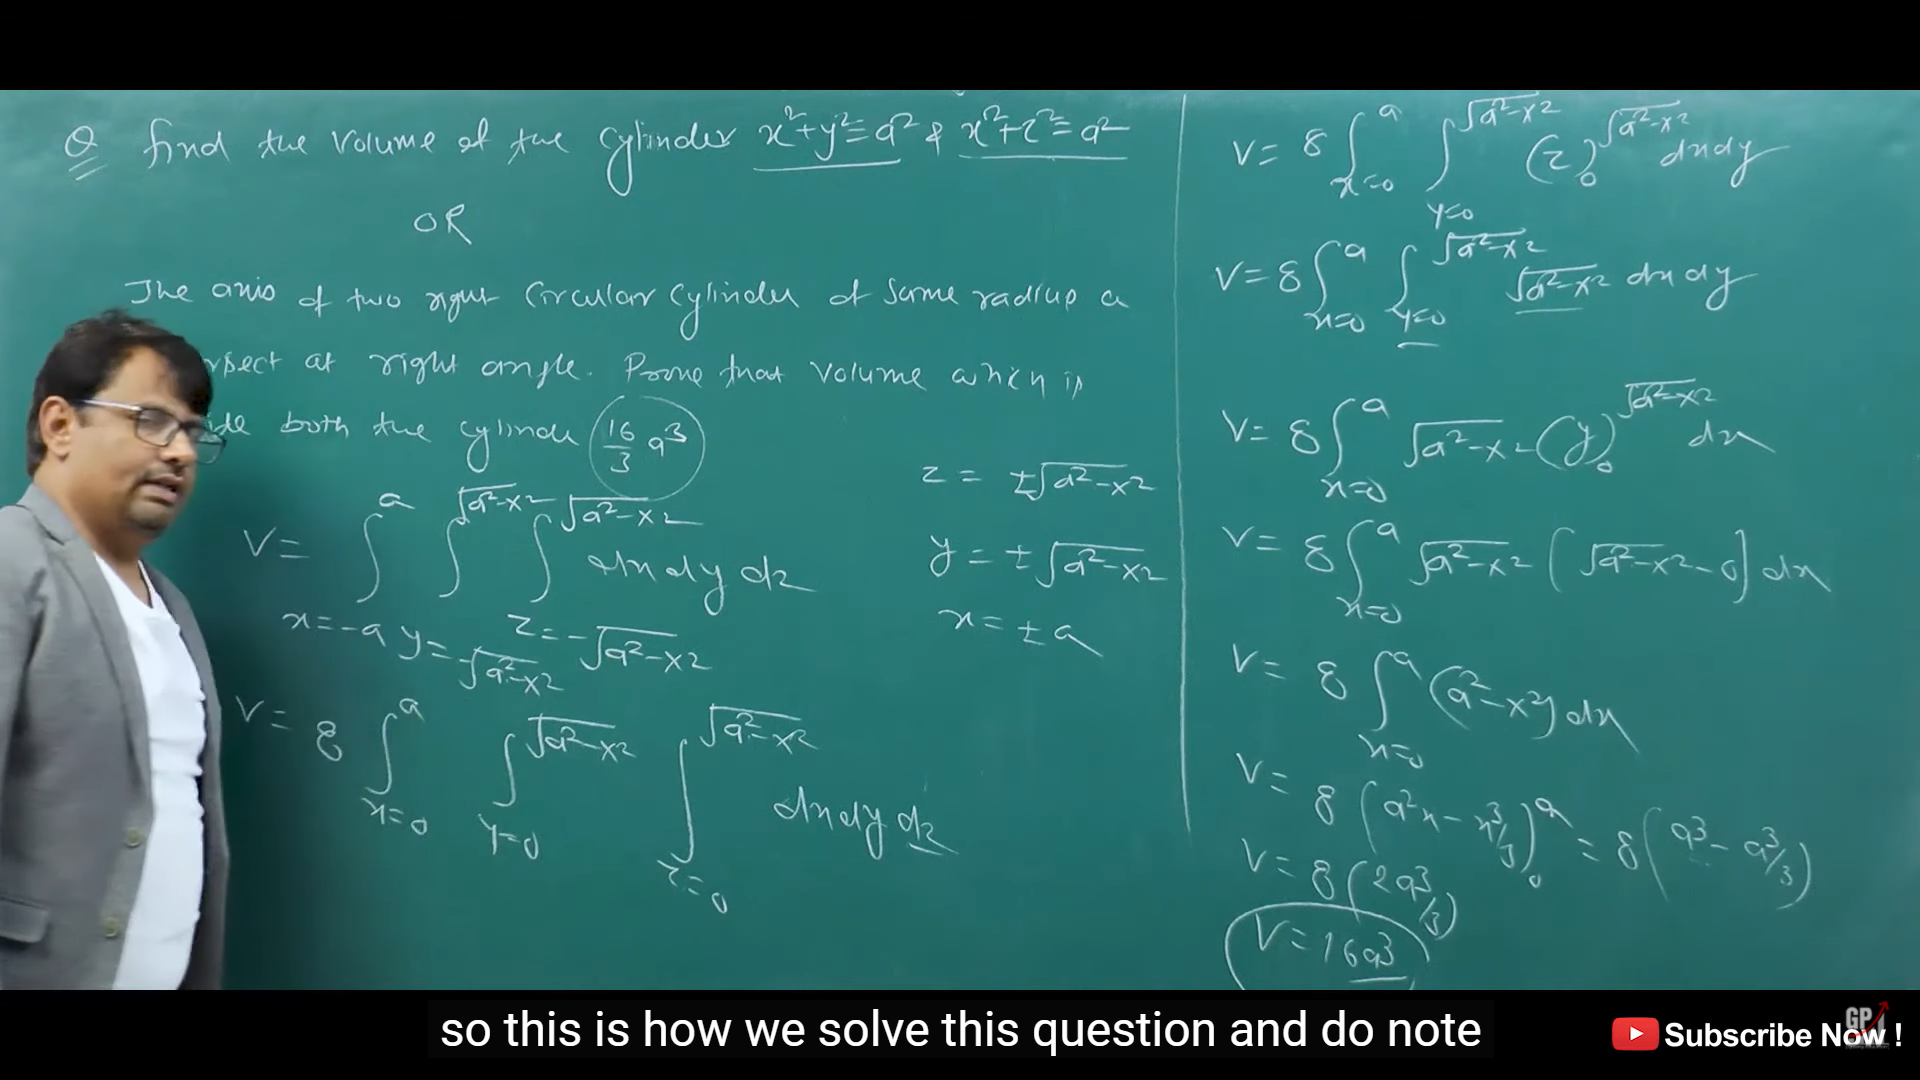 Q Find the volume of the cylinder x²+y²=a² & x²+z²=a²
OR
The axis of two right circular cylinder of same radius a
rsect at right angle. Prove that volume which is
ide both the cylinder 16/3 a³
V= ∫ₓ₌₋ₐᵃ ∫ y=-√a²-x² √a²-x² ∫ z=-√a²-x² √a²-x² dx dy dz
V= 8 ∫ x=0 a ∫ y=0 √a²-x² ∫ z=0 √a²-x² dx dy dz
z = ±√a²-x²
y = ±√a²-x²
x = ±a
V= 8 ∫ x=0 a ∫ y=0 √a²-x² (z)₀ √a²-x² dx dy
V= 8 ∫ x=0 a ∫ y=0 √a²-x² √a²-x² dx dy
V= 8 ∫ x=0 a √a²-x² (y)₀ √a²-x² dx
V= 8 ∫ x=0 a √a²-x² (√a²-x² - 0] dx
V= 8 ∫ x=0 a (a²-x²) dx
V= 8 (a²x - x³/3)₀ᵃ = 8 (a³ - a³/3)
V= 8 (2a³/3)
V= 16a³
so this is how we solve this question and do note
GP
Subscribe Now !